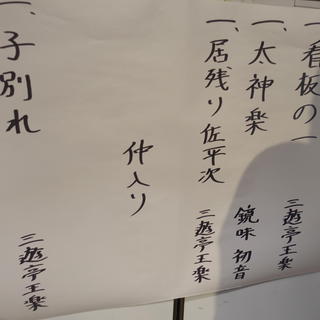 一、看板の一
三遊亭王楽
一、太神楽
鏡味初音
一、居残り佐平次
三遊亭王楽
仲入り
一、子別れ
三遊亭王楽